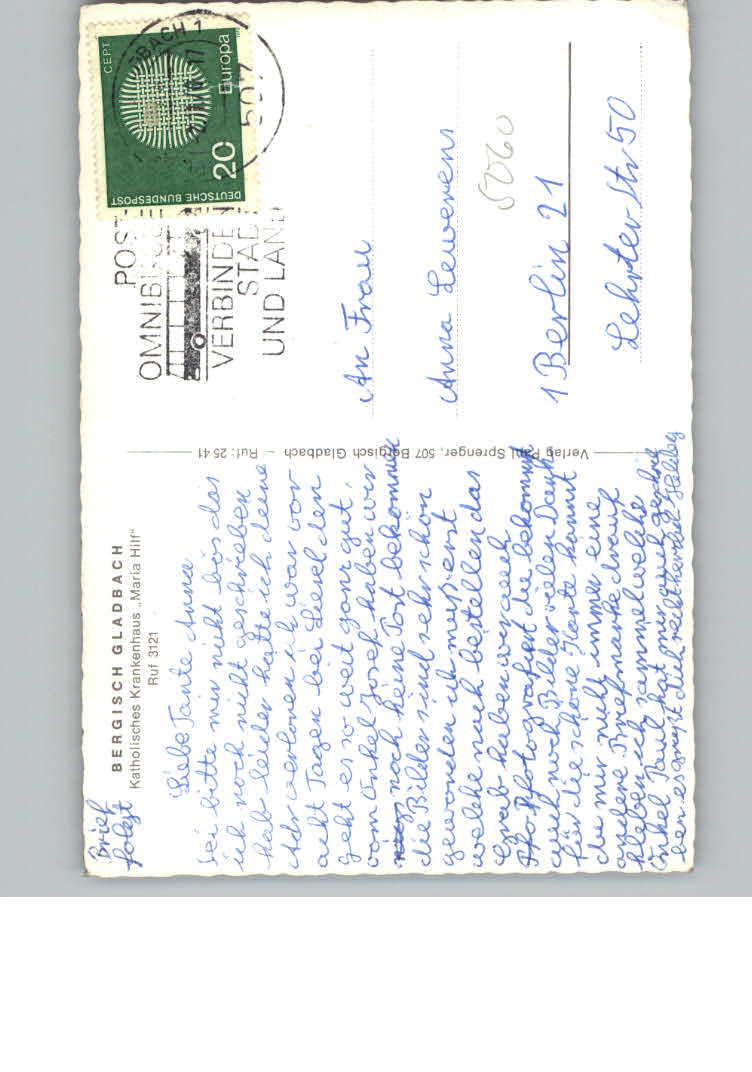 Brief
folgt
BERGISCH GLADBACH
Katholisches Krankenhaus „Maria Hilf“
Ruf 3121
Liebe Tante Anna
sei bitte mir nicht bös das
ich noch nicht geschrieben
hab leider hatte ich deine
Adr verloren ich war vor
acht Tagen bei Liesel den
geht es so weit ganz gut,
vom Onkel Josef haben wir
noch keine Post bekommen
die Bilder sind sehr schön
geworden ich muß erst
welche nach bestellen das
Grab haben wir auch
Photografiert du bekommst
auch noch Bilder vielen Dank
für die schöne Karte kannst
du mir nicht immer eine
andere Briefmarke drauf
kleben ich sammel welche
Onkel Paul hat mir auch geschrie
ben es grüßt dich recht herzlich
Verlag Paul Sprenger, 507 Bergisch Gladbach - Ruf: 25 41
CEPT
Europa
20
DEUTSCHE BUNDESPOST
BACH 1
507
POST
OMNIBUSSE
VERBINDEN
STADT
UND LAND
An Frau
Anna Lewerens
5060
1 Berlin 21
Lehrter Str 50